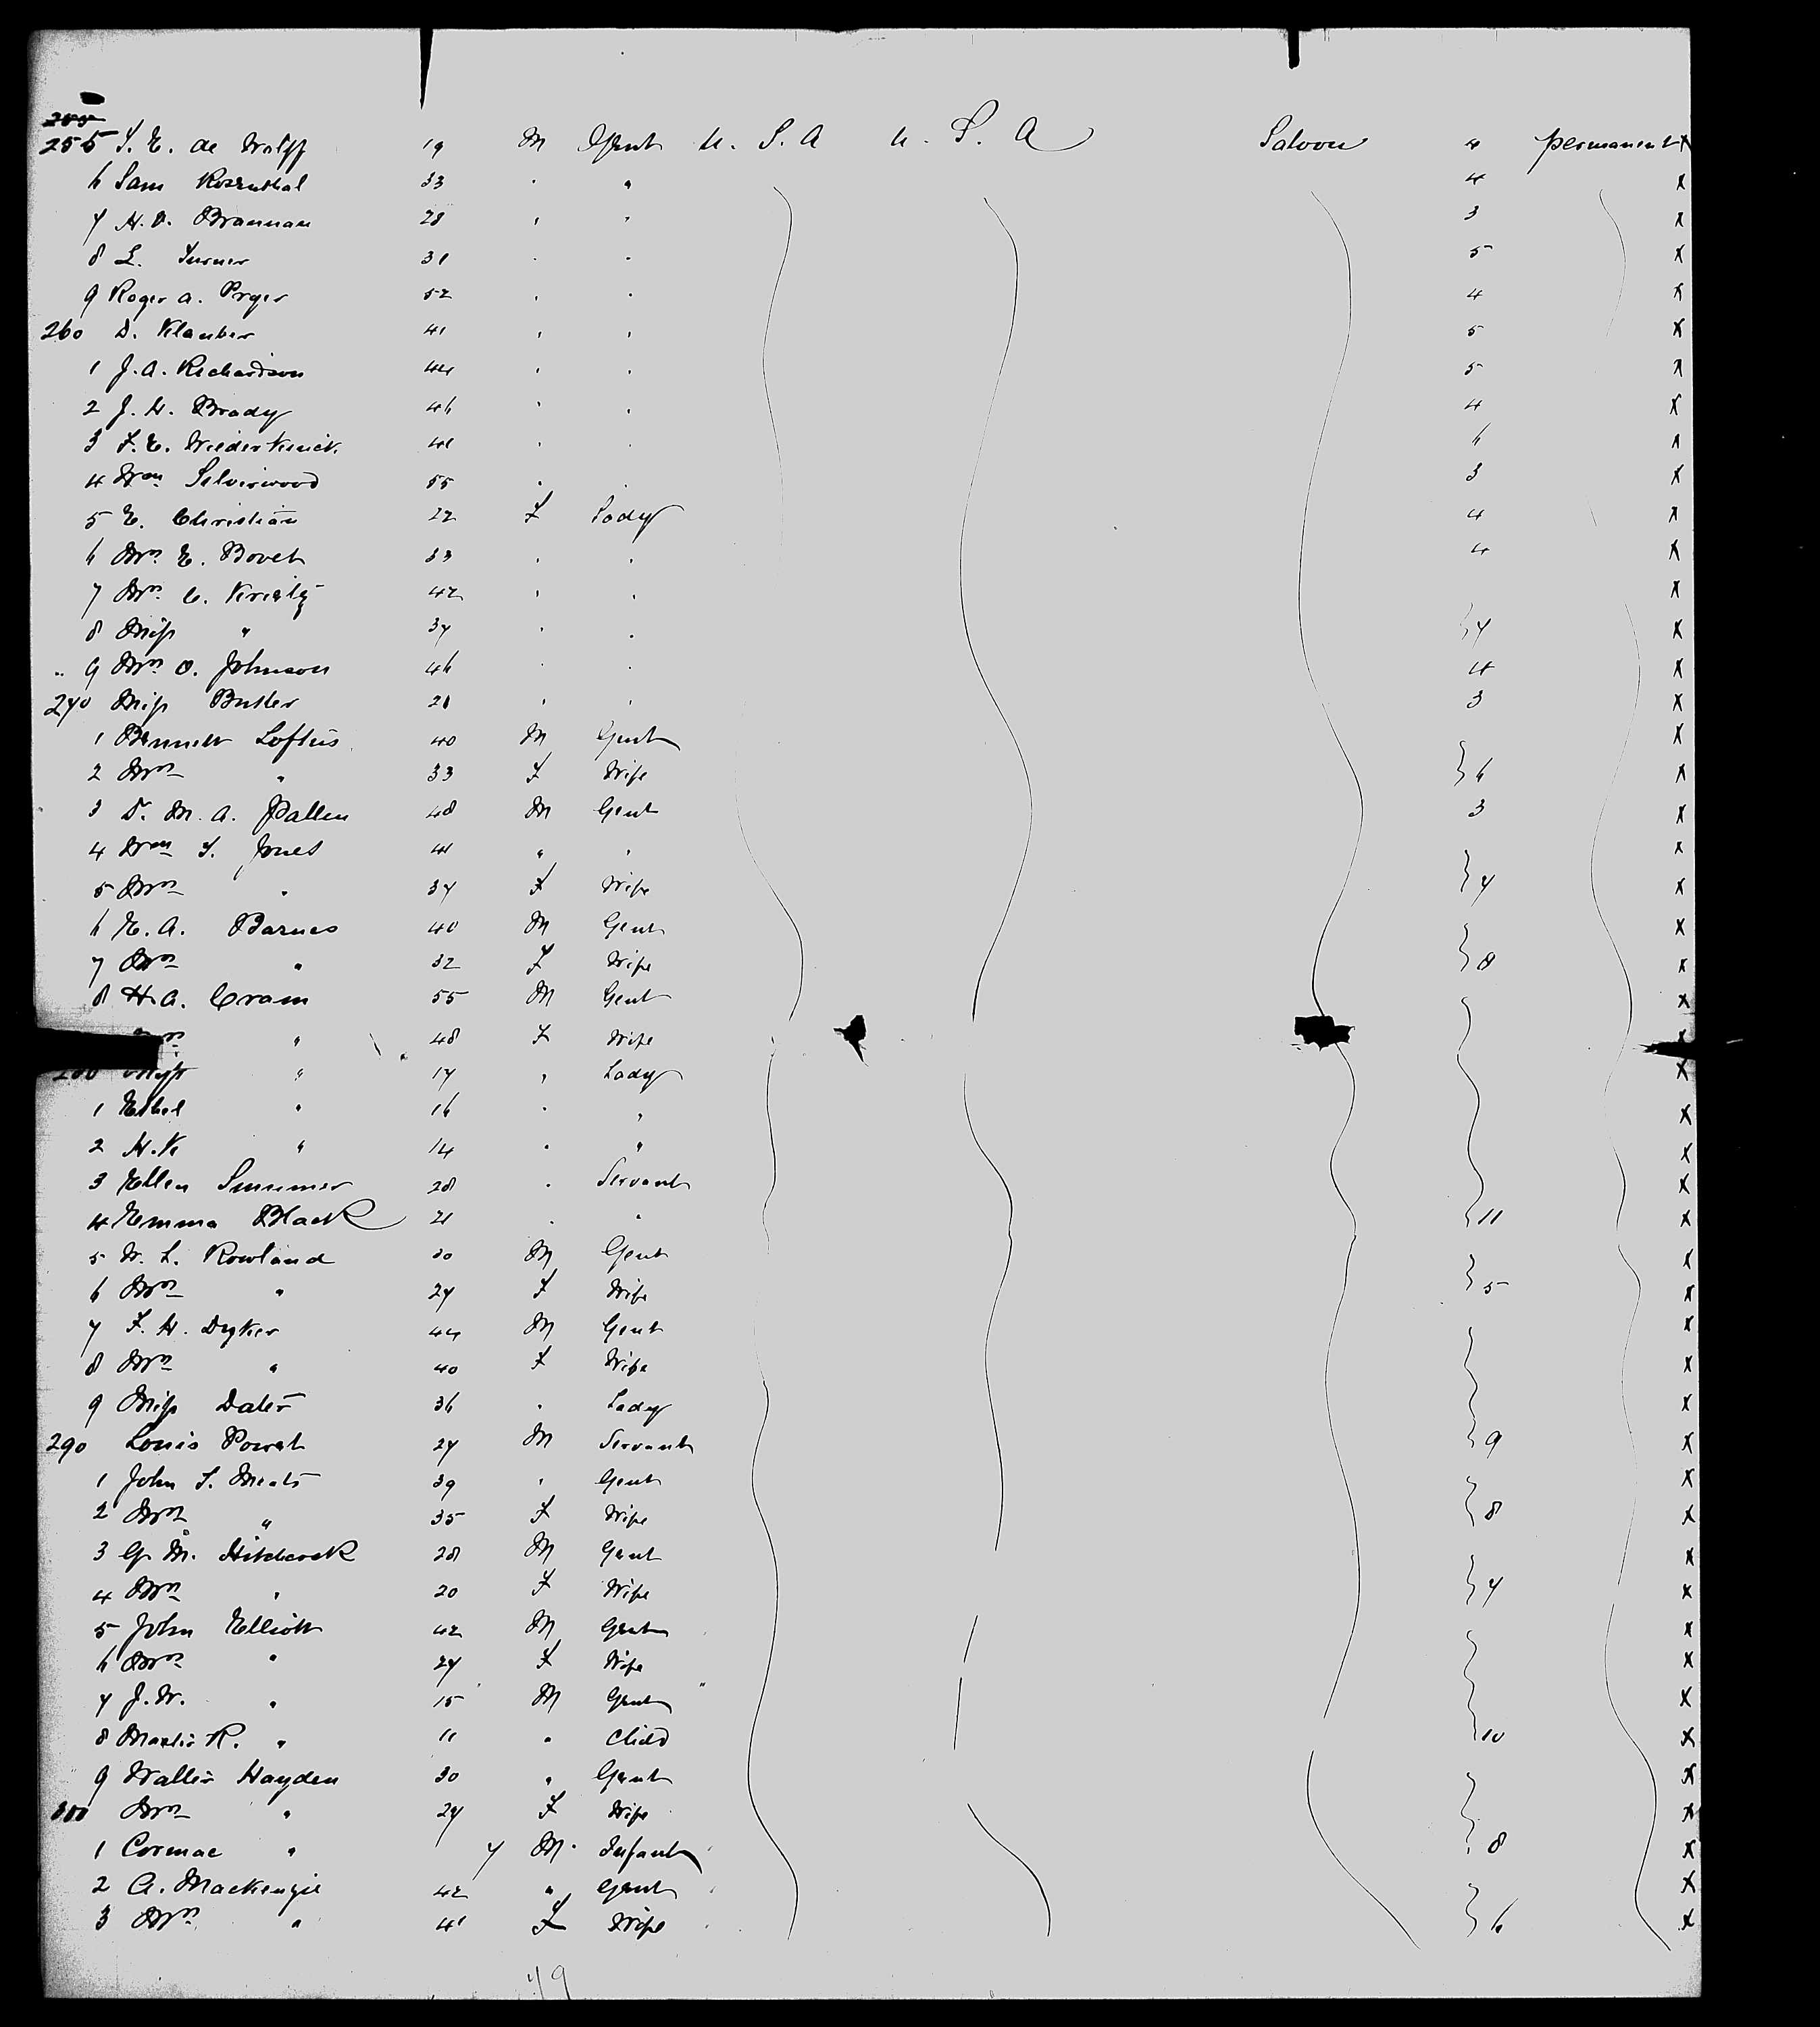 255 S. E. de Wolff 19 M Gent U. S. A U. S. A Saloon 4 permanent X
6 Sam Rosenthal 33 " " 4 X
7 H. D. Brannan 28 " " 3 X
8 L. Turner 31 " " 5 X
9 Roger A. Pryer 52 " " 4 X
260 D. Klauber 41 " " 5 X
1 J. A. Richardson 44 " " 5 X
2 J. H. Brady 46 " " 4 X
3 F. E. 41 " " 6 X
4 Wm Silverwood 55 " " 3 X
5 E. Christian 22 F Lady 4 X
6 Mrs E. Bovet 33 " " 4 X
7 Mrs C. 42 " " X
8 Miss " 37 " " } 7 X
9 Mrs O. Johnson 46 " " 4 X
270 Miss Butler 21 " " 3 X
1 Bennett Loftus 40 M Gent X
2 Mrs " 33 F Wife } 6 X
3 Dr. M. A. Pallen 48 M Gent 3 X
4 Wm S. Jones 41 " " X
5 Mrs " 37 F Wife } 7 X
6 E. A. Barnes 40 M Gent X
7 Mrs " 32 F Wife } 8 X
8 H. A. Cram 55 M Gent X
Mrs " 48 F Wife X
280 Miss " 17 " Lady X
1 Ethel " 16 " " X
2 H. K " 14 " " X
3 Ellen 28 " Servant X
4 Emma Black 21 " " } 11 X
5 W. L. Rowland 30 M Gent X
6 Mrs " 27 F Wife } 5 X
7 F. H. Dyker 44 M Gent X
8 Mrs " 40 F Wife X
9 Miss Dater 36 " Lady X
290 Louis 27 M Servant } 9 X
1 John S. 39 " Gent X
2 Mrs " 35 F Wife } 8 X
3 G. M. Hitchcock 28 M Gent X
4 Mrs " 20 F Wife } 7 X
5 John Elliott 42 M Gent X
6 Mrs " 27 F Wife X
7 J. W. " 15 M Gent X
8 R. " 11 " Child } 10 X
9 Walter Hayden 30 " Gent X
300 Mrs " 27 F Wife X
1 Cormac " 7 M Infant } 8 X
2 A. Mackenzie 42 " Gent X
3 Mrs " 41 F Wife } 6 X
49